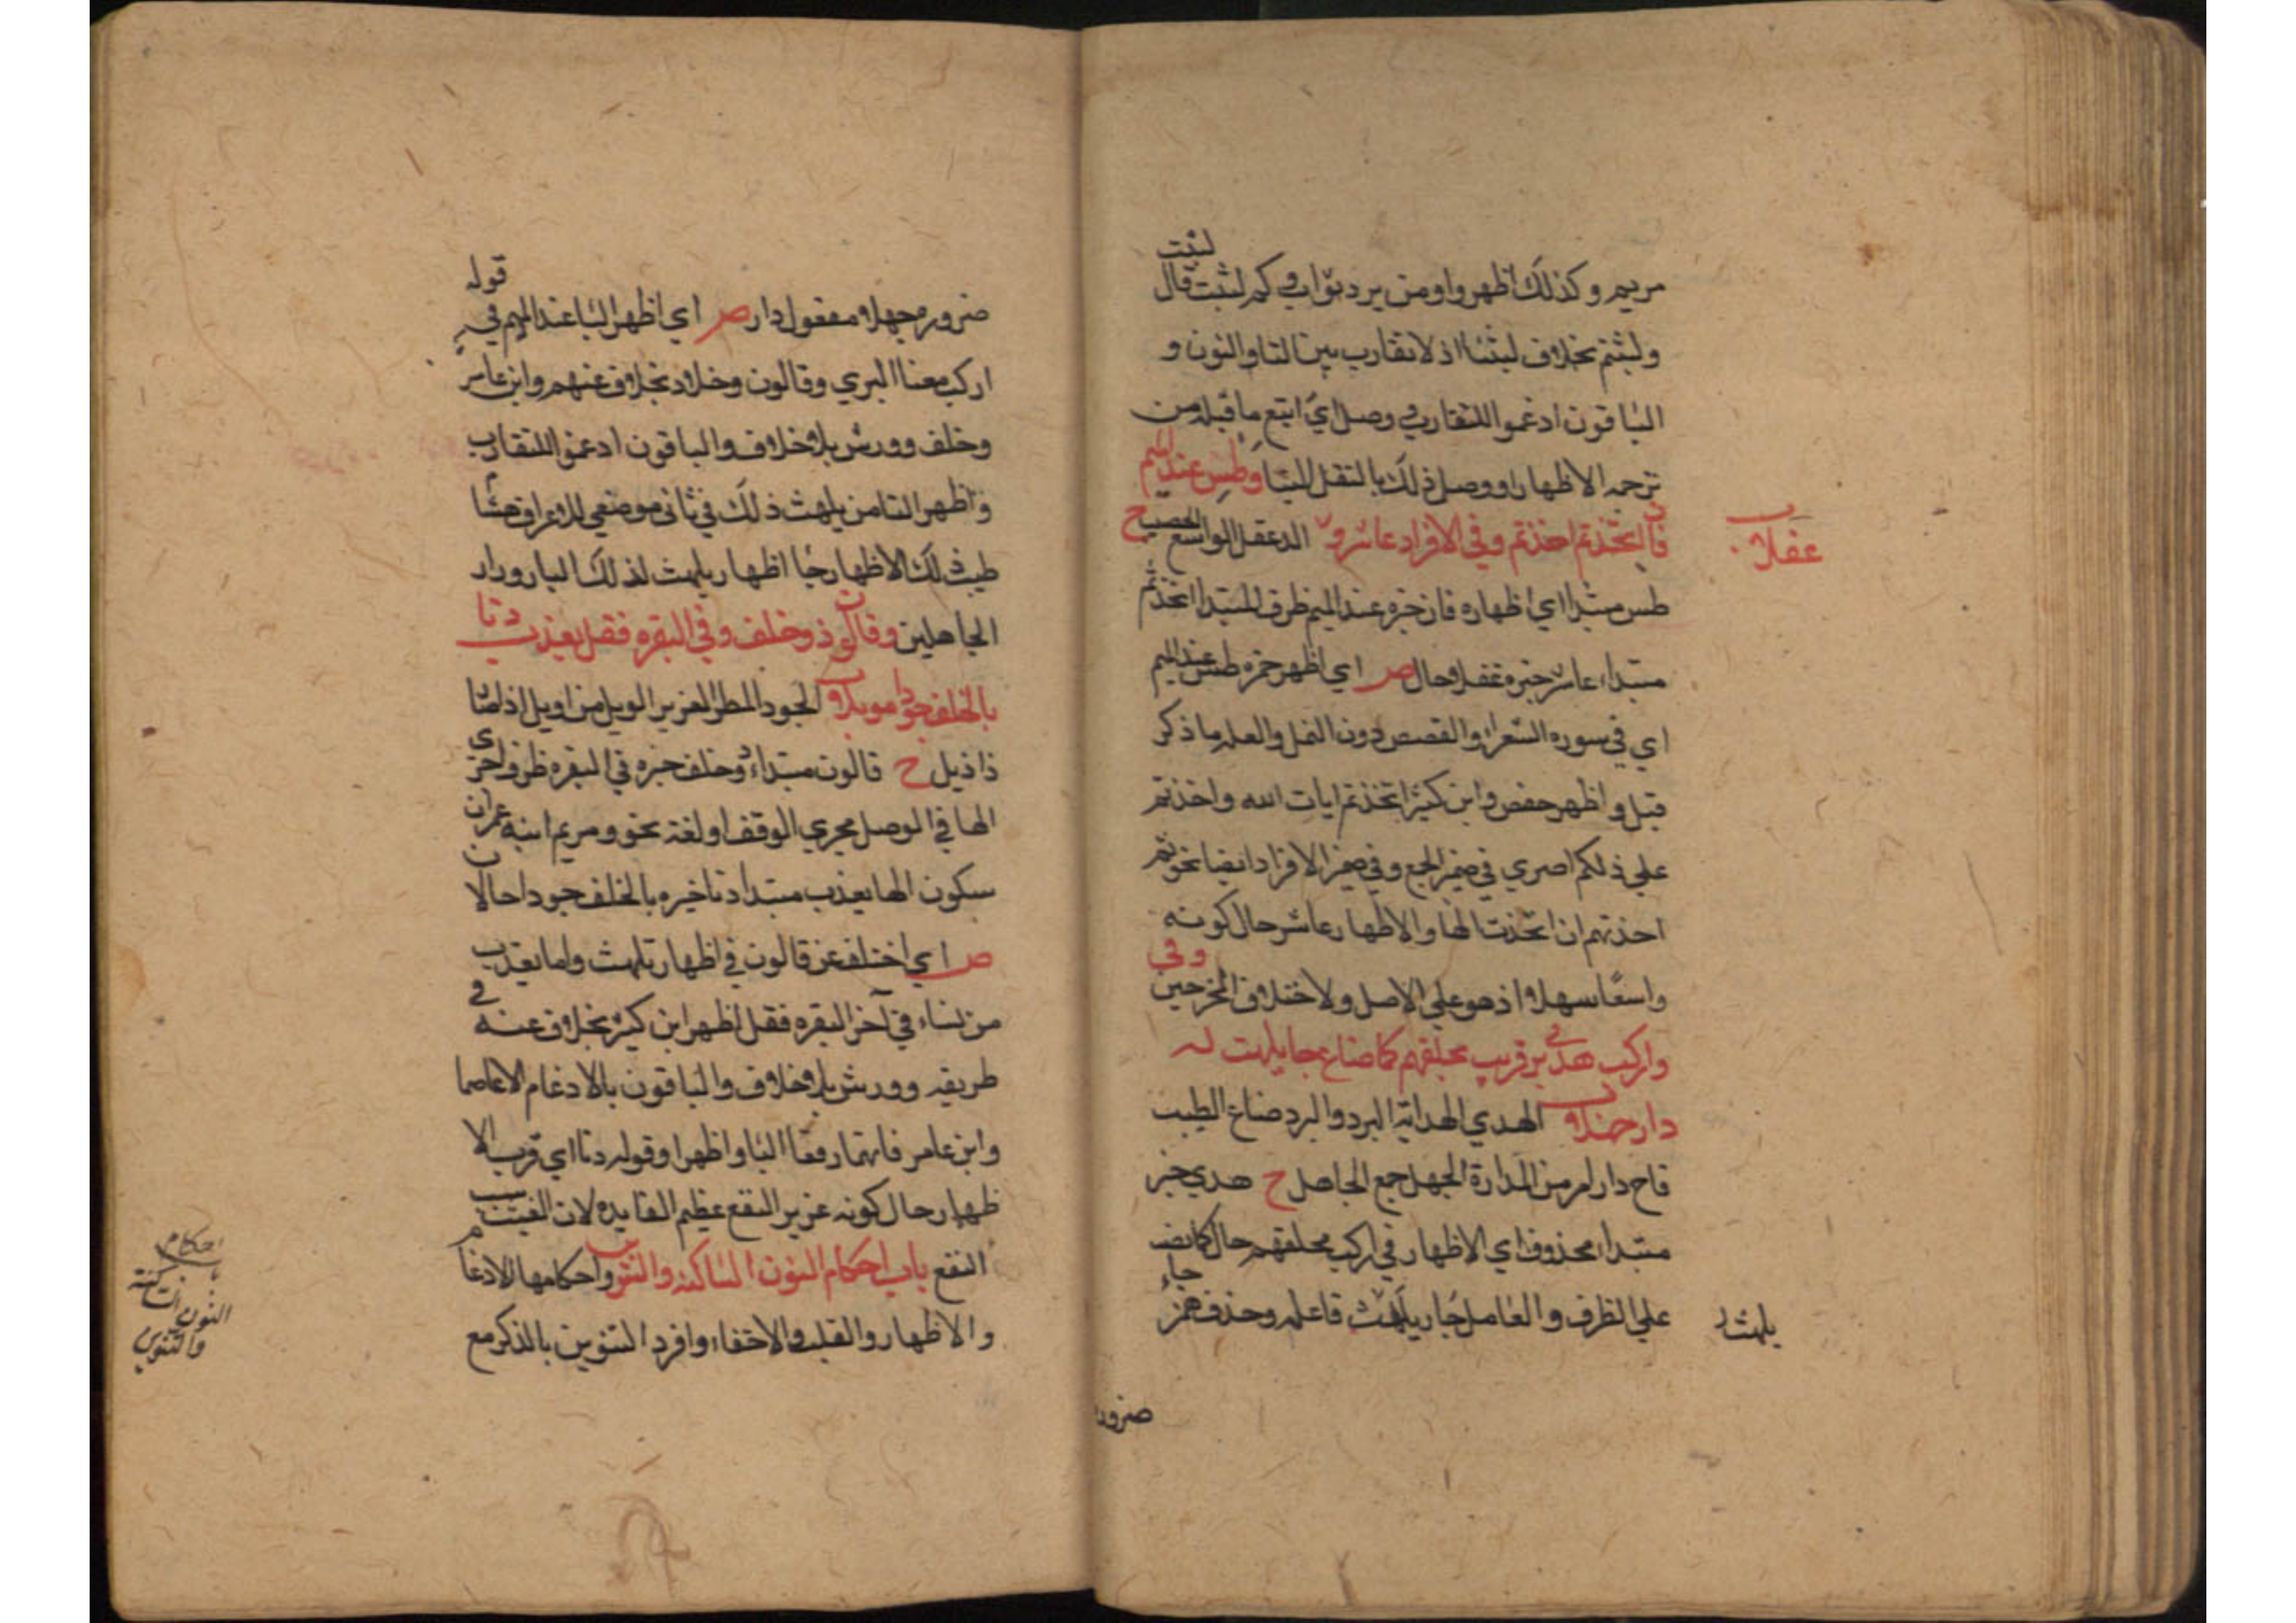 لبثت
مريم وكذلك اظهروا ومن يرد ثواب وكم لبثت قال
ولبثتم بخلاف لبثنا اذ لا تقارب بين التا والنون و
الباقون ادغموا للتقارب ووصل اي اتبع ما قبله من
ترجمه الاظهار او وصل ذلك بالنقل الينا وطس عند الميم
فاز اتخذتم اخذتم وفي الافراد عاشر و الدغفل الواسع الخصيب ح
عفلا
طس مبتدا اي اظهاره فاز خبره عند الميم ظرف للمبتدا اتخذتم
مبتداء عاشر خبره غفلا حال ص اي اظهر حمزه طس عند الميم
اي في سوره الشعراء والقصص دون النمل والعله ما ذكر
قبل واظهر حفص وابن كثير اتخذتم ايات الله واخذتم
علي ذلكم اصري في ضمير الجمع وفي ضمير الافراد ايضا نحو ثم
اخذتهم ان اتخذت الها والاظهار عاشر حال كونه
واسعا سهلا اذ هو علي الاصل ولاختلاف المخرجين وفي
واركب هدي بر قريب بخلفهم كما ضاع جا يلهث له
دار جهلا الهدي الهداية البر دوالبر دضاع الطيب
فاح دار امر من المدارة الجهل جمع الجاهل ح هدي خبر
مبتدا محذوف اي الاظهار في اركب بخلفهم حال كما نصب
علي الظرف والعامل جا ر يلهث فاعله وحذف همز جاء
يلهث
ضرور
ضروره جهلا مفعول دار ص اي اظهر البا عند الميم في قوله
اركب معنا البزي وقالون وخلاد بخلاف عنهم وابن عامر
وخلف وورش بلا خلاف والباقون ادغموا للتقارب
واظهر الثا من يلهث ذلك في ثاني موضعي الاعراف هشام
طيب ذلك الاظهار جا اظهار يلهث لذلك البار ودار
الجاهلين وقالون ذو خلف وفي البقره فقل يعذب دنا
بالخلف جودا وموبلا الجود المطر الغزير الوبل من اوبل اذا صار
ذا وبل ح قالون مبتداء وذو خلف خبره في البقره ظرف اجرى
الها في الوصل مجري الوقف او لغة نحو ومريم ابنه عمران
سكون الها يعذب مبتدا دنا خبره بالخلف جودا حالان
ص اي اختلف عن قالون في اظهار يلهث واما يعذب
من يشاء في آخر البقره فقل اظهر ابن كثير بخلاف عنه في
طريقه وورش بلا خلاف والباقون بالادغام الا عاصما
وابن عامر فانهما رفعا البا واظهرا وقوله دنا اي قرب الا
ظهار حال كونه غزير النفع عظيم الفايده لان الغيث
النفع باب احكام النون الساكنه والتنوين واحكامها الادغام
والاظهار والقلب والاخفاء وافرد التنوين بالذكر مع
احكام
النون الساكنة
والتنوين